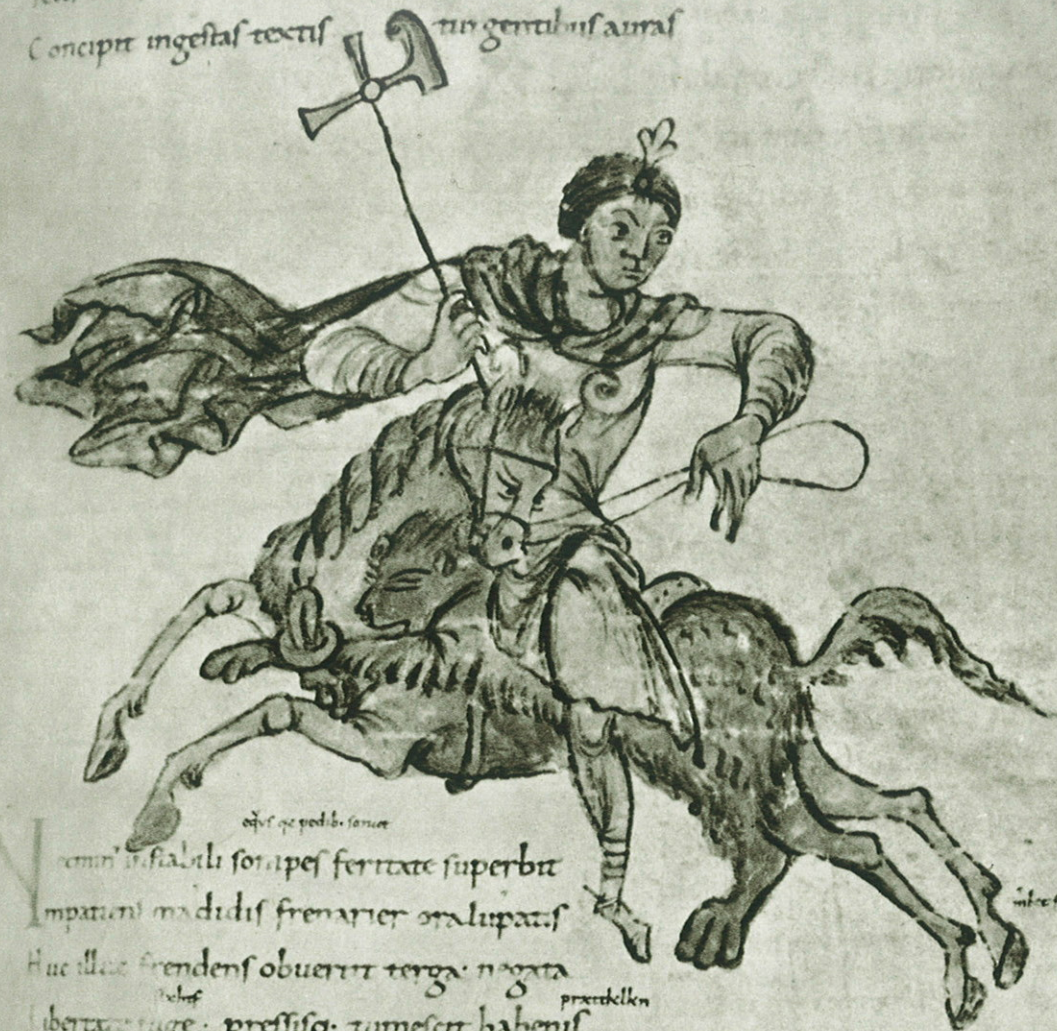 Concipit ingestas textis turgentibus auras
Nec min' instabili sonipes feritate superbit
Impatiens madidis frenarier ora lupatis
Huc illuc frendens obuertit terga negata
Libertate fuge · pressisq· tumescit habenis